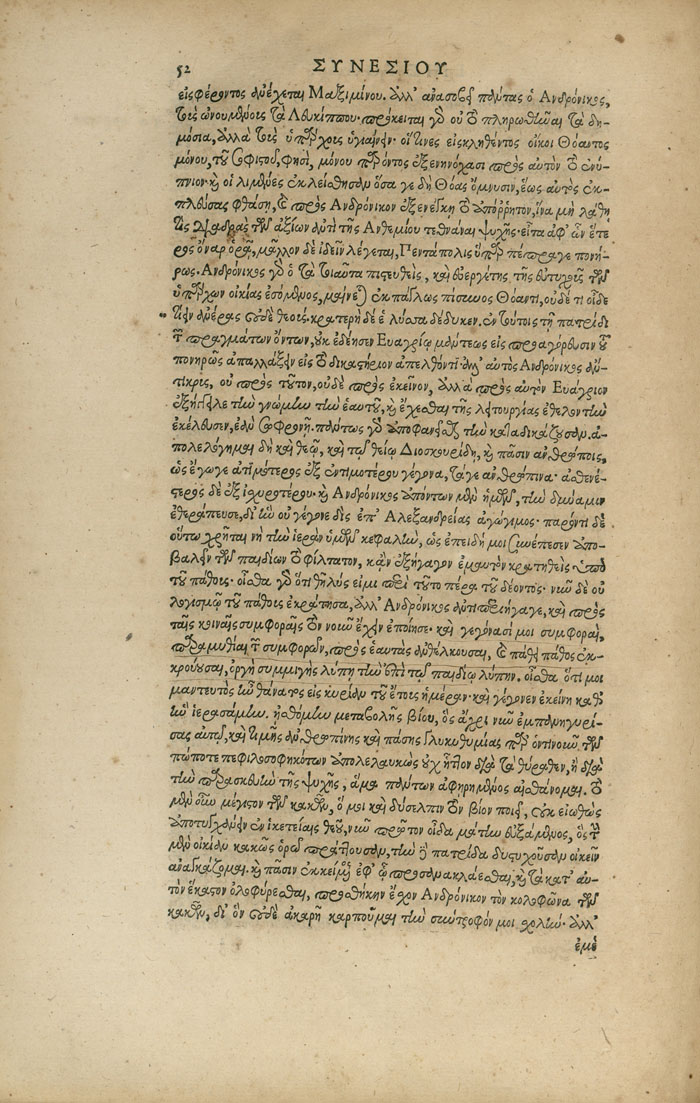 52 ΣΥΝΕΣΙΟΥ
εἰσφέροντος ἀνέχεται Μαξιμίνου. ἀλλ' ἀνασοβεῖ πάντας ὁ Ἀνδρόνικος,
τοὺς ὠνουμένους τὰ Λευκίππου· πρόκειται γὸ οὐ τὸ πληρωθῆναι τὰ δη-
μόσια, ἀλλὰ τοὺς ὑπάρχοις ὑγιαίνειν· οἵτινες εἰσκληθέντος οἴκοι Θόαντος
μόνου, τοῦ σοφιστοῦ, φησὶ, μόνου παρόντος ἐξενηνόχασι πρὸς αὐτὸν τὸ ἐνύ-
πνιον· καὶ οἱ λιμένες ἐκλείσθησαν ὅσα γε δὴ Θόας ὄμνυσιν, ἕως αὐτὸς ἐκ-
πλεύσας φθάσῃ, καὶ πρὸς Ἀνδρόνικον ἐξενέγκῃ τὸ ἀπόρρητον, ἵνα μὴ λάθῃ
τις ἄνδρας τῶν ἀξίων ἀντὶ τῆς Ἀνθεμίου τεθνάναι ψυχῆς· εἶτα ἀφ' ὧν ἕτε
ρος ὄναρ ὁρᾷ, μᾶλλον δὲ ἰδεῖν λέγεται, Πεντάπολις ὕπαρ πέπραγε πονή-
ρως. Ἀνδρόνικος γὸ ὁ τὰ τοιαῦτα πιστευθεὶς, καὶ εὐεργέτης τῆς εὐτυχοῦς τῶν
ὑπάρχων οἰκίας ἐσόμενος, μαίνεται ἐκπάγλως πίσυνος Θόαντι, οὐδέ τι οἶδε
τίειν ἀνέρας οὐδὲ θεούς. κρατερὴ δέ ἑ λύσσα δέδυκεν. ἐν τούτοις τῇ πατρίδι
τῶν πραγμάτων ὄντων, οὐκ ἐδέησεν Εὐαγρίῳ μάντεως εἰς προαγόρευσιν τοῦ
πονηρῶς ἀπαλλάξειν εἰς τὸ δικαστήριον ἀπελθόντι· ἀλλ' αὐτὸς Ἀνδρόνικος ἄν-
τικρυς, οὐ πρὸς τοῦτον, οὐδὲ πρὸς ἐκεῖνον, ἀλλὰ πρὸς αὐτὸν Εὐάγριον
ἐξήγγειλε τὴν γνώμην τὴν ἑαυτοῦ, καὶ ἔχεσθαι τῆς λειτουργίας ἐθελοντὴν
ἐκέλευσεν, ἐὰν σωφρονῇ. πάντως γὸ ἀποφανεῖσθαι τὴν καταδικάζουσαν. ἀ-
πολελόγημαι δὴ καὶ θεῷ, καὶ τῷ θείῳ Διοσκουρίδῃ, καὶ πᾶσιν ἀνθρώποις,
ὡς ἔγωγε ἀτιμότερος ἐξ ἐντιμοτέρου γέγονα, τά γε ἀνθρώπινα· ἀσθενέ-
στερος δὲ ἐξ ἰσχυροτέρου. καὶ Ἀνδρόνικος ἀπόντων μὲν ἡμῶν, τὴν δύναμιν
ἐθεράπευσε, δι' ἣν οὐ γέγονε δὶς ἐπ' Ἀλεξανδρείας ἀγώγιμος· παρόντι δὲ
οὕτω χρῆται νὴ τὴν ἱερὰν ὑμῶν κεφαλὴν, ὡς ἐπειδή μοι συνέπεσεν ἀπο-
βαλεῖν τῶν παιδίων τὸ φίλτατον, κἂν ἐξήγαγον ἐμαυτὸν κρατηθεὶς ὑπὸ
τοῦ πάθους· οἶσθα γὸ ὅτι θῆλύς εἰμι περὶ τοῦτο πέρα τοῦ δέοντος· νῦν δὲ οὐ
λογισμῷ τοῦ πάθους ἐκράτησα, ἀλλ' Ἀνδρόνικος ἀντιπεριήγαγε, καὶ πρὸς
ταῖς κοιναῖς συμφοραῖς τὸν νοῦν ἔχειν ἐποίησε· καὶ γεγόνασί μοι συμφοραὶ,
παραμυθίαι τῶν συμφορῶν, πρὸς ἑαυτὰς ἀνθέλκουσαι, καὶ πάθει πάθος ἐκ-
κρούουσαι, ὀργὴ συμμιγὴς λύπῃ τὴν ἐπὶ τῷ παιδίῳ λύπην. οἶσθα ὅτι μοι
μαντευτὸς ἦν θάνατος εἰς κυρίαν τοῦ ἔτους ἡμέραν· καὶ γέγονεν ἐκείνη καθ'
ἣν ἱερασάμην. ᾐσθόμην μεταβολῆς βίου, ὃς ἄχρι νῦν ἐμπανηγυρί-
σας αὐτῷ, καὶ τιμῆς ἀνθρωπίνης καὶ πάσης γλυκυθυμίας παρ' ὁντινοῦν τῶν
πώποτε πεφιλοσοφηκότων ἀπολελαυκὼς οὐχ ἧττον διὰ τὰ θύραθεν, ἢ διὰ
τὴν παρασκευὴν τῆς ψυχῆς, ἅμα πάντων ἀφῃρημένος αἰσθάνομαι. τὸ
μὲν οὖν μέγιστον τῶν κακῶν, ὅ μοι καὶ δύσελπιν τὸν βίον ποιεῖ, οὐκ εἰωθὼς
ἀποτυγχάνειν ἐν ἱκετείαις θεοῦ, νῦν πρῶτον οἶδα μάτην εὐξάμενος, ὃς τὴν
μὲν οἰκίαν κακῶς ὁρῶ πράττουσαν, τὴν δὲ πατρίδα δυστυχοῦσαν οἰκεῖν
ἀναγκάζομαι. καὶ πᾶσιν ἐκκεῖμαι ἐφ' ᾧ προσανακλάεσθαι, καὶ τὰ κατ' αὐ-
τὸν ἕκαστον ὀλοφύρεσθαι, προσθήκην ἔχον Ἀνδρόνικον τὸν κολοφῶνα τῶν
κακῶν, δι' ὃν οὐδὲ ἀκαρῆ καρποῦμαι τὴν σύντροφόν μοι σχολήν. ἀλλ'
ἐμὲ